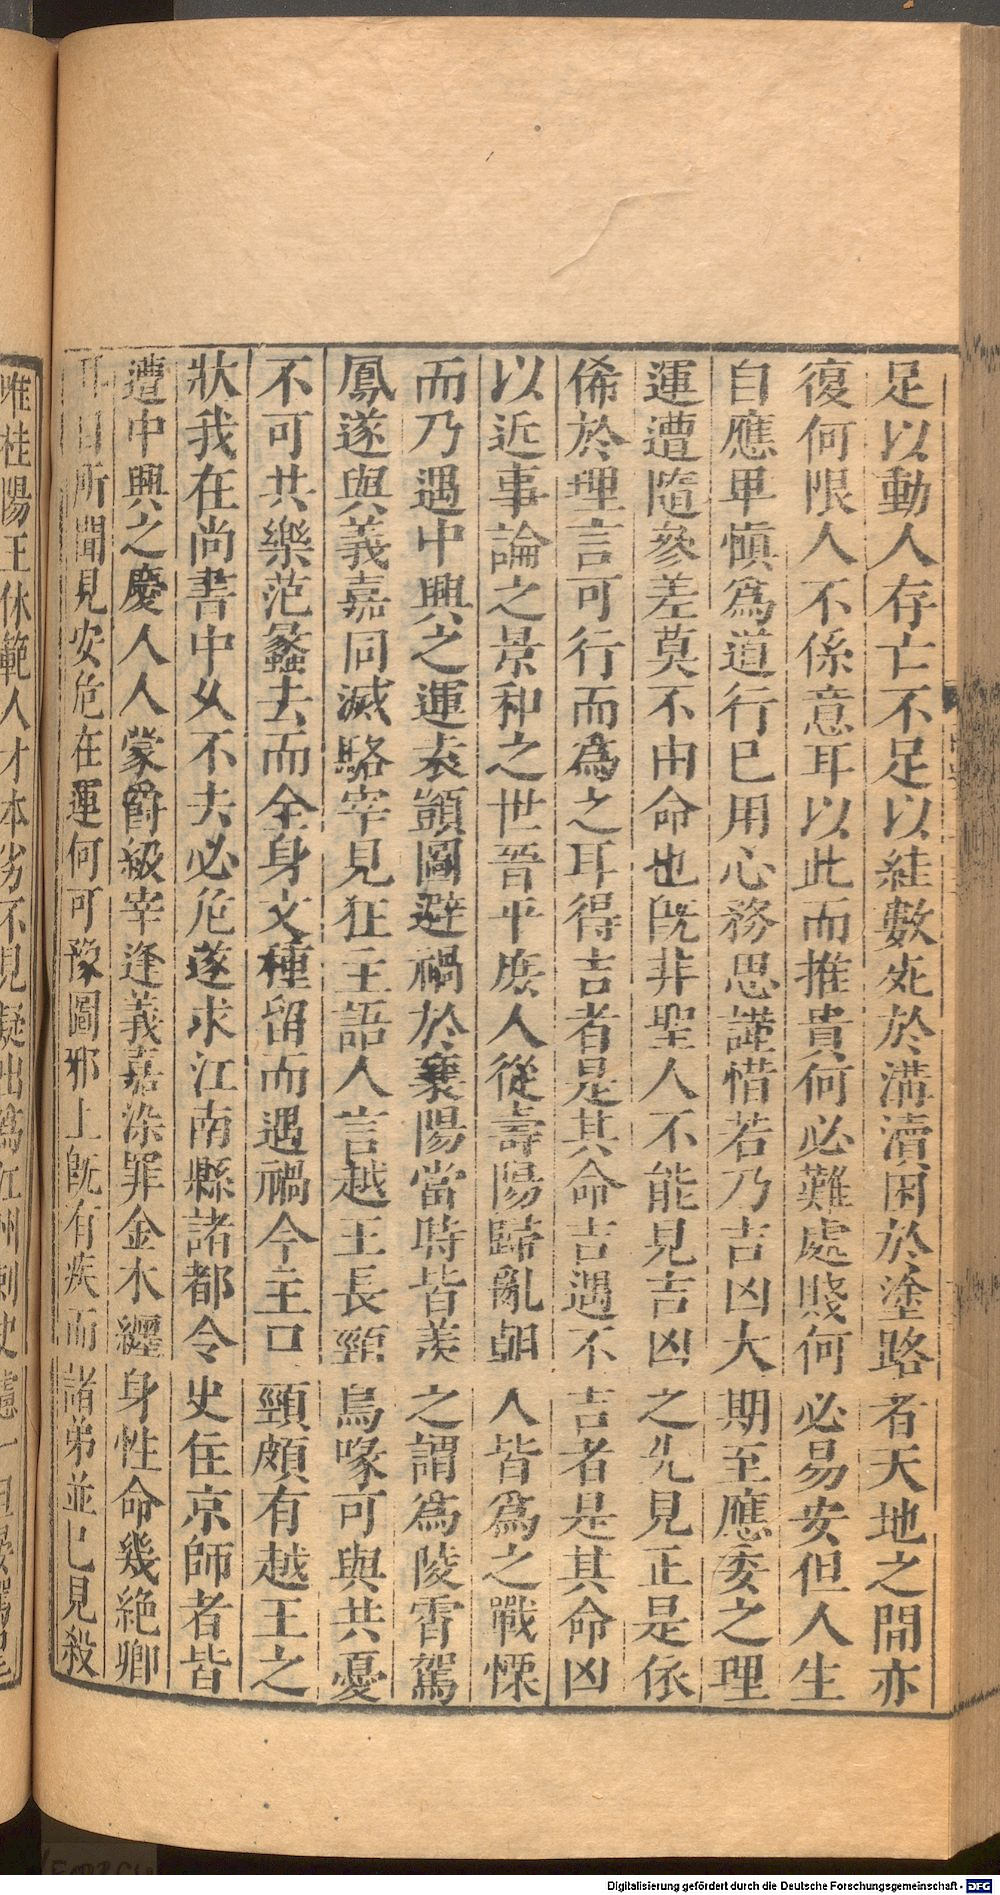 足以動人存亡不足以絓數死於溝瀆困於塗路者天地之間亦
復何限人不係意耳以此而推貴何必難處賤何必易安但人生
自應卑愼爲道行已用心務思謹惜若乃吉凶大期至應委之理
運遭隨參差莫不由命也旣非聖人不能見吉凶之先見正是依
俙於理言可行而爲之耳得吉者是其命吉遇不吉者是其命凶
以近事論之景和之世晉平庶人從壽陽歸亂朝人皆爲之戰慄
而乃遇中興之運袁顗圖避禍於襄陽當時皆羨之謂爲陵霄駕
鳳遂與義嘉同滅駱宰見狂王語人言越王長頸鳥喙可與共憂
不可共樂范蠡去而全身文種留而遇禍今主口頸頗有越王之
狀我在尚書中久不去必危遂求江南縣諸都令史住京師者皆
遭中興之慶人人蒙爵級宰逢義嘉染罪金木纏身性命幾絕卿
耳目所聞見安危在運何可豫圖邪上旣有疾而諸弟並已見殺
唯桂陽王休範人才本劣不見疑出爲江州刺史慮一旦晏駕
Digitalisierung gefördert durch die Deutsche Forschungsgemeinschaft - DFG